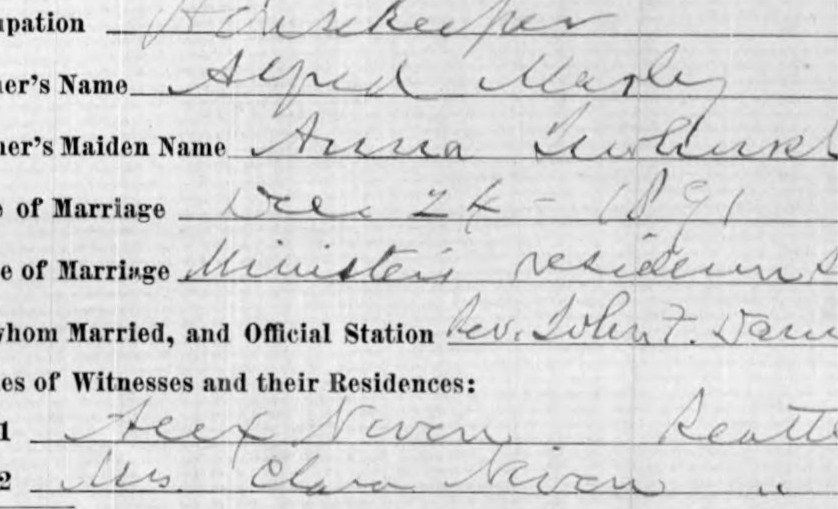 upation Housekeeper
er's Name Alfred
er's Maiden Name Anna
e of Marriage Dec. 24 - 1891
e of Marriage Minister's
whom Married, and Official Station Rev. John F.
es of Witnesses and their Residences:
1 Alex Niven Seatt
2 Mrs. Clara Niven "